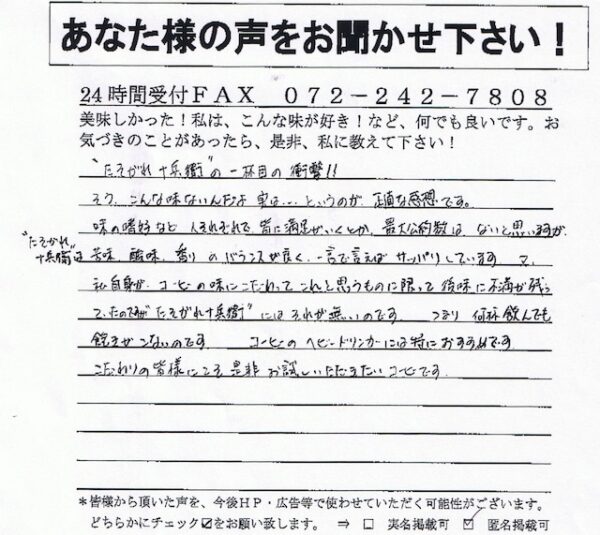 あなた様の声をお聞かせ下さい！
24時間受付ＦＡＸ　０７２－２４２－７８０８
美味しかった！私は、こんな味が好き！など、何でも良いです。お
気づきのことがあったら、是非、私に教えて下さい！
"たそがれ十兵衛"の一杯目の衝撃!!
そう、こんな味ないんだよ 実は…というのが 正直な感想です。
味の嗜好など 人それぞれで、皆に満足がいくとか、最大公約数は ないと思いますが、
"たそがれ十兵衛"は
苦味、酸味、香りのバランスが良く、一言で言えば サッパリしています
私自身が、コーヒーの味にこだわって これと思うものに限って 後味に不満が残っ
て、たのですが"たそがれ十兵衛"にはそれが無いのです。 つまり 何杯飲んでも
飽きがこないのです コーヒーのヘビードリンカーには特におすすめです
こだわりの皆様にこそ是非お試しいただきたいコーヒーです。
＊皆様から頂いた声を、今後ＨＰ・広告等で使わせていただく可能性がございます。
どちらかにチェック☑をお願い致します。 ⇒ □ 実名掲載可 ☑ 匿名掲載可